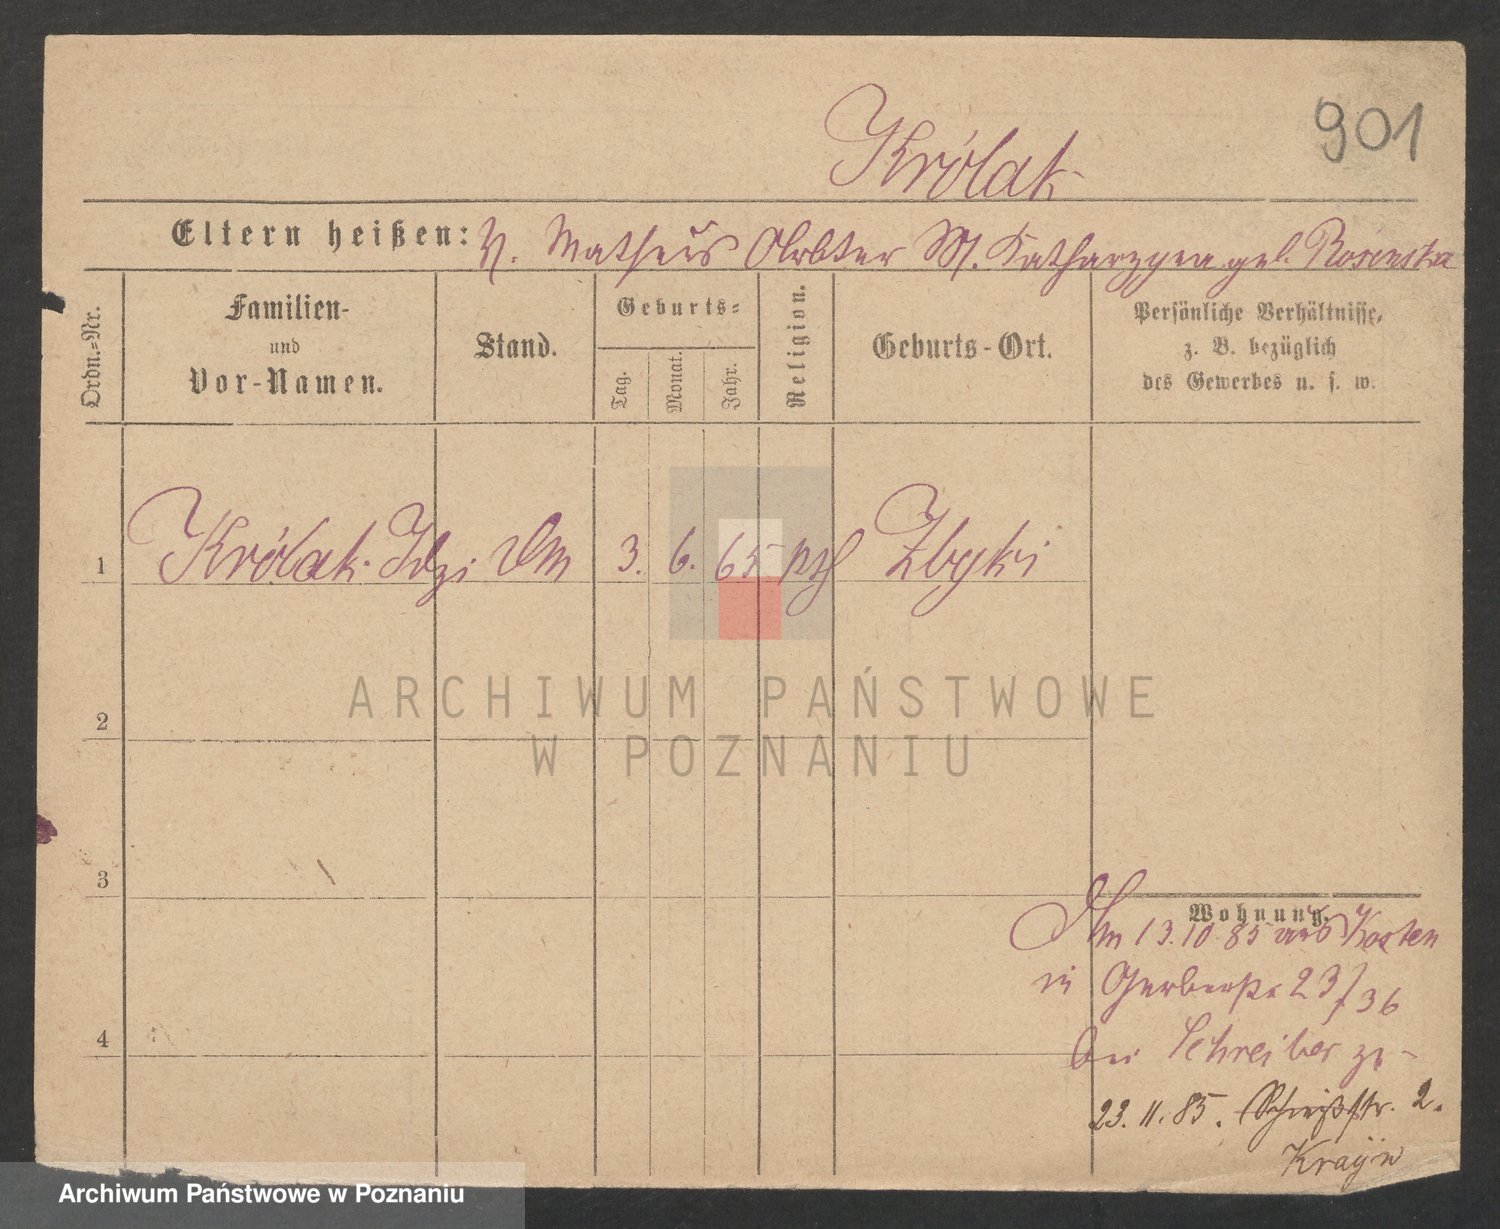 901
Królak
Eltern heißen: V. Matheus Arbter M. Katharzyna geb. Rosenska
Ordn.-Nr.
Familien-
und
Vor-Namen.
Stand.
Geburts-
Tag.
Monat.
Jahr.
Religion.
Geburts-Ort.
Persönliche Verhältnisse,
z. B. bezüglich
des Gewerbes u. s. w.
1 Królak Idzi 3. 6. 65 kth Zbęki
ARCHIWUM PAŃSTWOWE
W POZNANIU
2
3
4
Wohnung.
Am 13.10 85 aus Kosten
in Gerberstr 23/36
bei Schreiber zg-
23. 11. 85. Schießstr. 2.
Archiwum Państwowe w Poznaniu